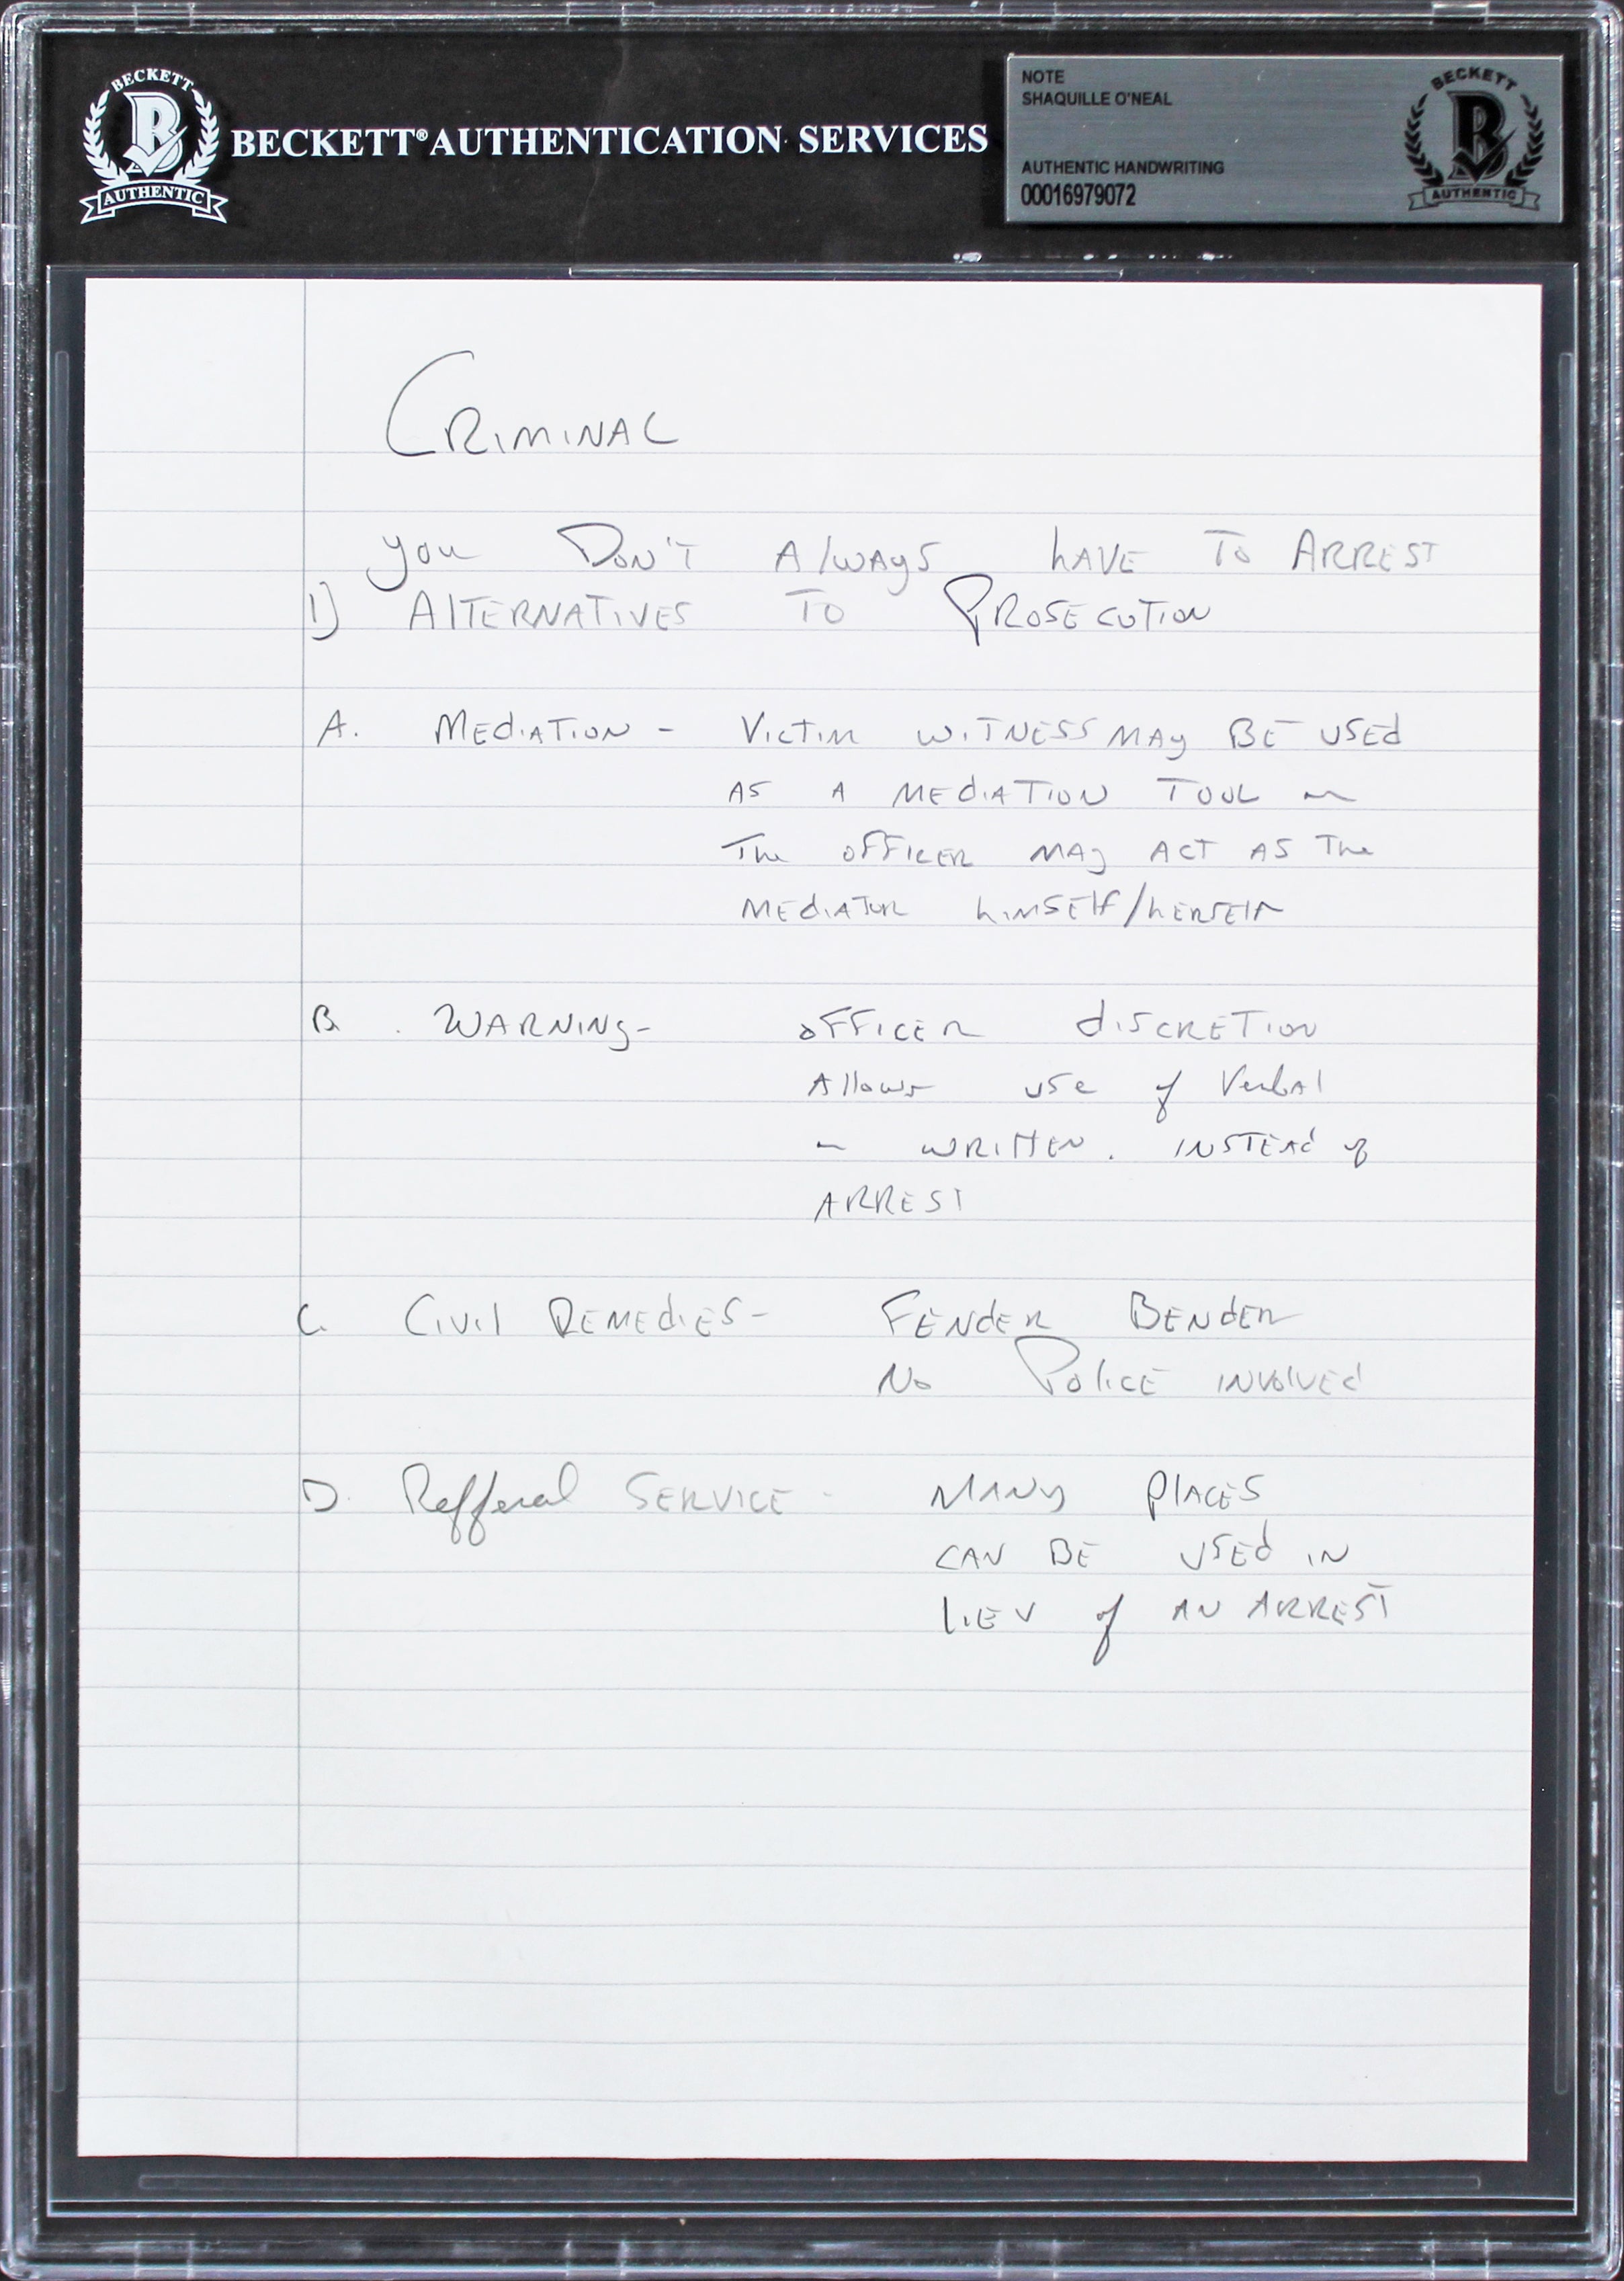 BECKETT
B
AUTHENTIC
BECKETT® AUTHENTICATION SERVICES
NOTE
SHAQUILLE O'NEAL
AUTHENTIC HANDWRITING
00016979072
BECKETT
B
AUTHENTIC
CRIMINAL
you DON'T Always have To ARREST
1) AlTERNATIVES TO PROSECUTION
A. MEdiATION - VICTIM WITNESS MAy BE USEd
AS A MEdiATION TOOL or
The OFFICER MAy ACT AS The
MEdiATOR hiMSElf/hERSElf
B. WARNINg - OFFICER diSCRETION
Allows use of VerbAl
or WRITTEN. INSTEAd of
ARREST
C. CIVIl REMEdiES - FENdER BENdER
No PoliCE INVOlVEd
D. Refferal SERVICE - MANy PlACES
CAN BE USEd IN
liEV of AN ARREST